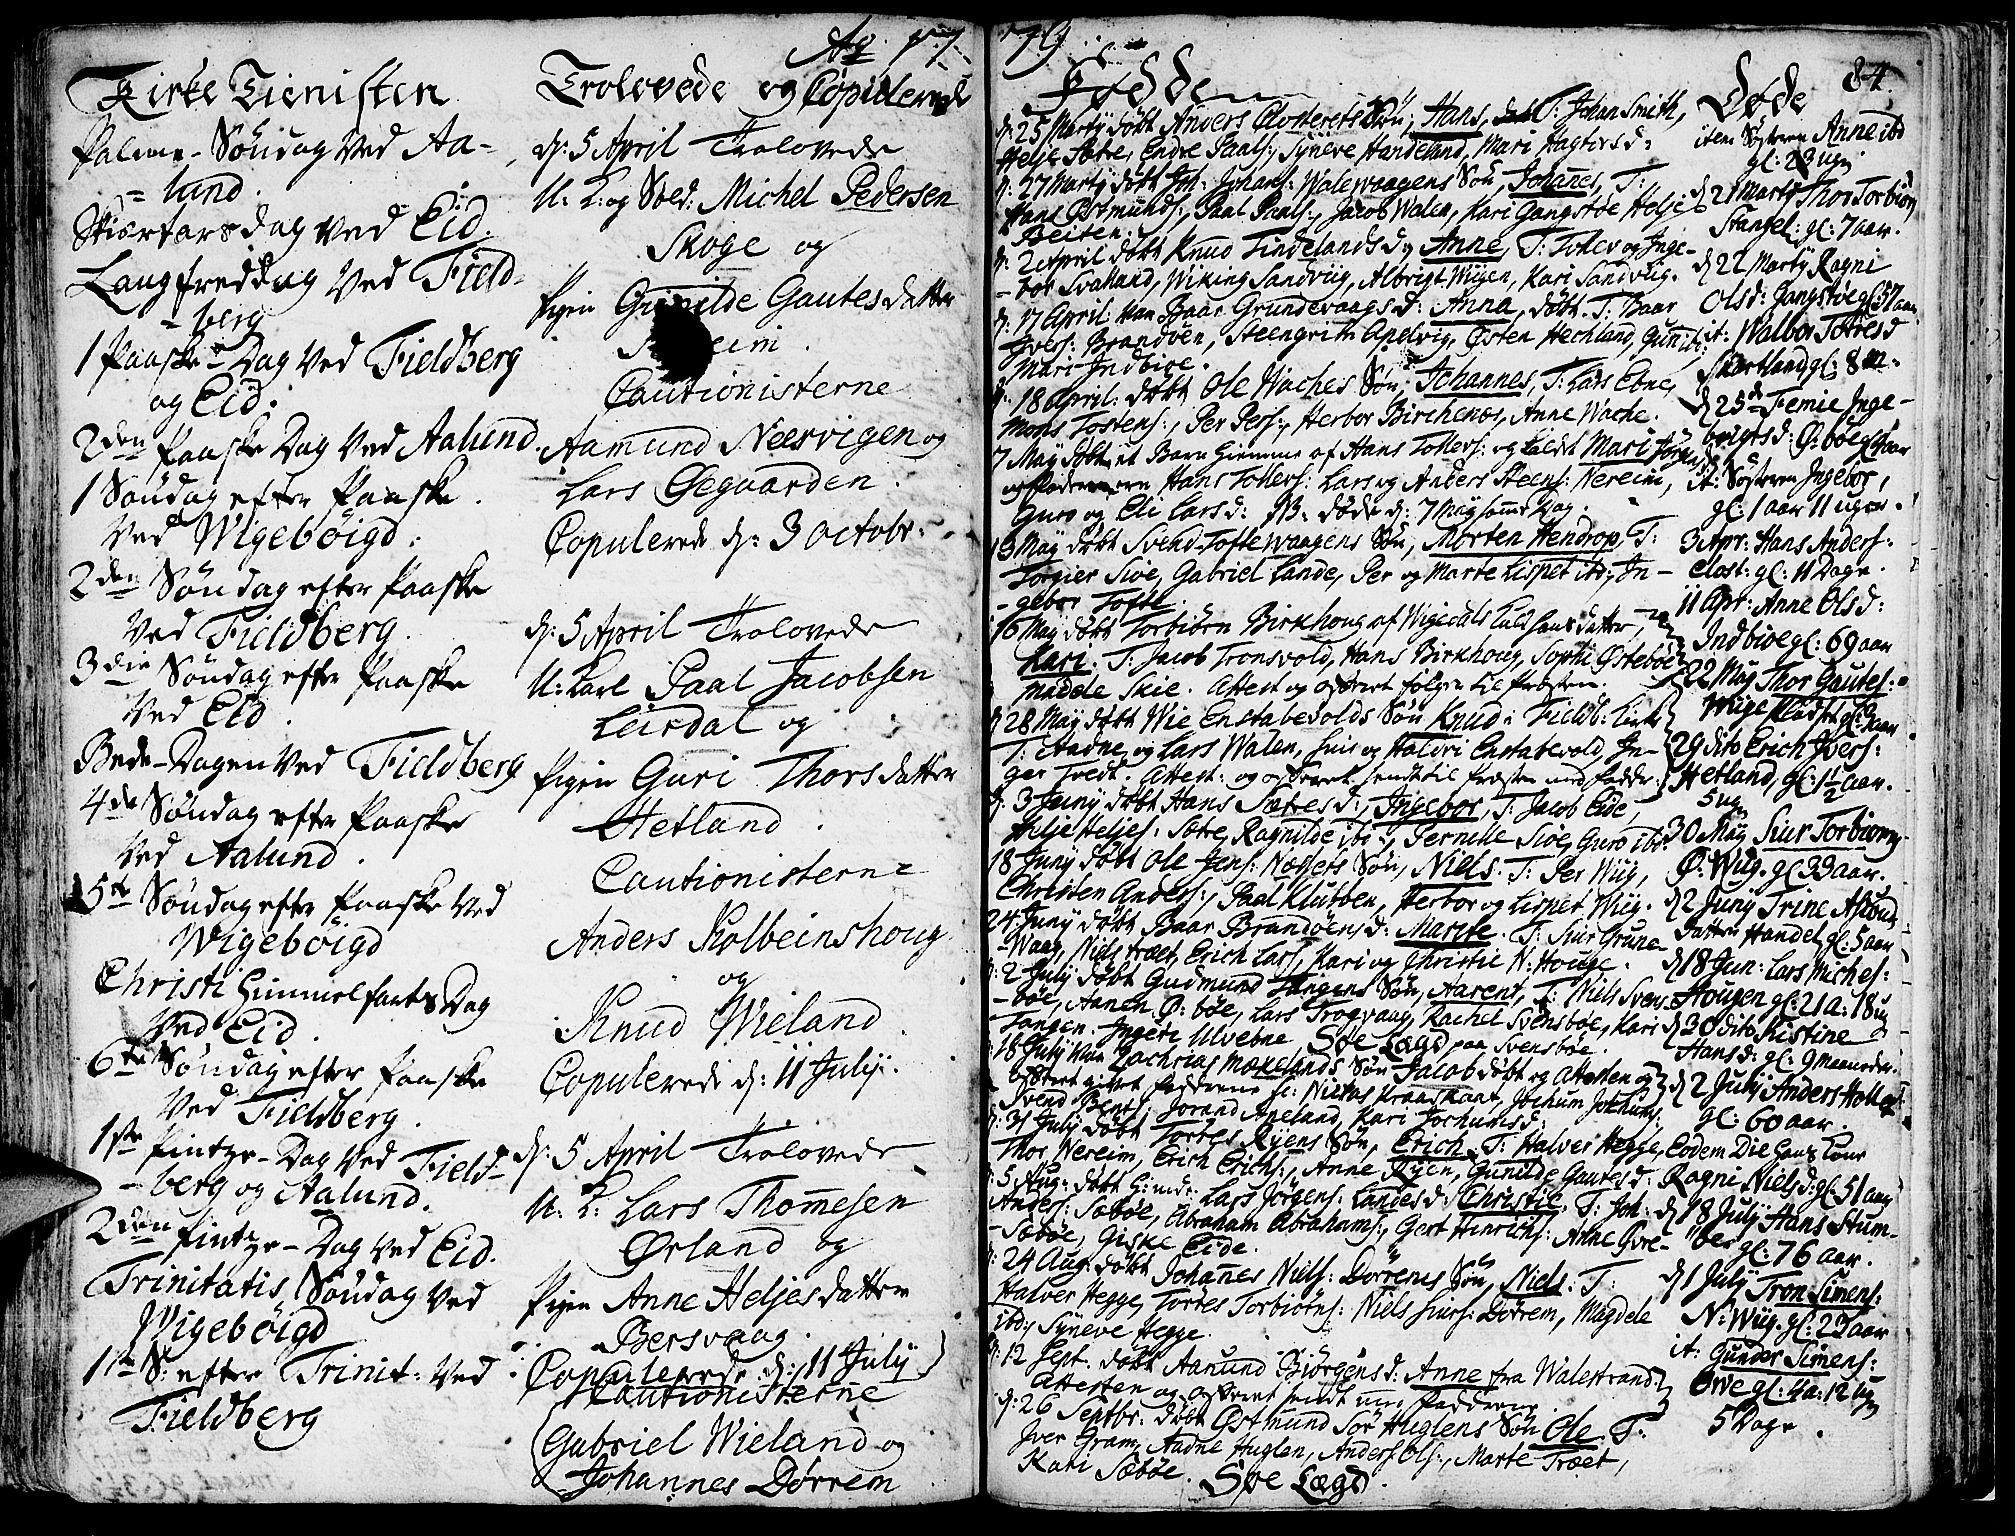 Ao. 17
Kirke Tienisten
Palme-Søndag Ved Aa-
= lund.
Skiærtorsdag Ved Eid.
Langfreddag Ved Field-
= berg
1 Paaske-Dag Ved Fieldberg
og Eid.
2den Paaske Dag Ved Aalund.
1 Søndag efter Paaske
Ved Wigebøigd.
2den Søndag efter Paaske
Ved Fieldberg.
3die Søndag efter Paaske
Ved Eid.
Bede-Dagen Ved Fieldberg
4de Søndag efter Paaske
Ved Aalund.
5te Søndag efter Paaske Ved
Wigebøigd
Christi Himmelfarts Dag
Ved Eid.
6te Søndag efter Paaske
Ved Fieldberg.
1ste Pintze-Dag Ved Field-
-berg og Aalund.
2den Pintze-Dag Ved Eid.
Trinitatis Søndag Ved
Wigebøigd
1ste S: efter Trinit: Ved
Fieldberg
Trolovede og Copulerede
d: 5 April Trolovede
U: K: og Sold: Michel Pedersen
Skoge og
Pigen Gunilde Gautesdatter
Cautionisterne
Aamund Neervigen og
Lars Øegaarden.
Copulerede d: 3 Octobr:
d: 5 April Trolovede
U: Karl Paal Jacobsen
Leirdal og
Pigen Guri Thorsdatter
Hetland.
Cautionisterne
Anders Kolbeinshoug
og
Knud Wieland.
Copulerede d: 11 July.
d: 5 April Trolovede
U: K: Lars Thomesen
Ørland og
Pigen Anne Heljesdatter
Bersvaag.
Copulerede d: 11 July
Cautionisterne
Gabriel Wieland og
Johannes Dørrem
79
Fødde
d: 25 Marty døbt Anders Closterets Søn, Hans, T: Johan Smith,
Helje Sætre, Endre Paals:, Syneve Handeland, Mari Hagtorsd:
d: 27 Marty døbt Joh: Johans: Walevaagens Søn, Johannes, T:
Hans Østmunds:, Paal Paals:, Jacob Walen, Kari Gangstøe, Helje
Beiten.
d: 2 April døbt Knud Tindelands d: Anne, T: Tollev og Inge-
-bor Svalland, Wiking Sandvig, Albrigt Wiigen, Kari Sandvig.
d: 17 April: Baar Grundevaags d: Anna, døbt. T: Baar
Ivers: Brandøen, Steengrim Apelvig, Østen Hechland, Guni ibd:
Mari Indbioe.
d: 18 April: døbt Ole Waches Søn, Johannes, T: Lars Ebne,
Mons Tostens:, Per Pers:, Herbor Birchenæs, Anne Wache.
7 May døbt et Barn hiemme af Hans Tollevs: og kaldt Mari Jørgens
og Fadderne ere Hans Tollevs: Lars og Anders Steens: Nereim,
Guro og Eli Larsd: NB: døde d: 7 May samme Dag.
13 May døbt Svend Toftevaagens Søn, Morten Hendrop, T:
Torgier Sioe, Gabriel Lande, Per og Marte Lispet ibd:, In-
-gebor Tofte.
16 May døbt Torbiørn Birkhoug af Wigedals Kald hans datter,
Kari. T: Jacob Tronsvold, Hans Birkhoug, Sophi Østebøe
Madde Skie. Attest og offeret følger til Præsten.
d: 28 May døbt Wie Enstabevolds Søn Knud i Fieldb: Kirke
T: Aadne og Lars Walen, Siur og Haldri Enstabevold, In-
ger Tvedt. Attest: og offeret sendt til Præsten med Faddr:
d: 3 Juny døbt Hans Sætres d:, Ingebor, T: Jacob Eide,
Helje Heljes: Sætre, Ragnilde ibd:, Pernille Sioe, Guro ibd:
18 Juny døbt Ole Jens: Næssets Søn, Niels. T: Per Wiig,
Christen Anders:, Paal Klubben, Herbor og Lispet Wiig.
24 Juny døbt Baar Brandøens d: Marite. T: Siur Grune-
Waag, Niels Træt, Erich Lars:, Kari og Christie N: Houge.
d: 2 July døbt Gudmund Tangens Søn, Aarent, T: Niels Svens-
-bøe, Aanen Ø: bøe, Lars Trogvaag, Rachel Svensbøe, Kari
Tangen. Ingeri Ulvebne Søe Lægd paa Svensbøe.
18 July Zachrias Mækelands Søn Jacob døbt og Attesten og
offeret givet Fadderne. Niclas Kraaskant, Jochum Jochums:
Svend Bent:, Jorand Aneland, Kari Jochumsd:
d: 31 July døbt Torres Ryens Søn, Erich, T: Halver Hegge,
Thor Nereim, Erich Erichs:, Anne Ryen, Gunilde Gautesd:
d: 5 Aug: døbt Lars Jørgens: Landes d: Christie, T: Joh:
Anders: Sæbøe, Abraham Abrahams:, Gert Hinrichs: Anne Øvre-
-Sæbøe, Giske Eide.
d: 24 Aug: døbt Johannes Niels: Dørrems Søn, Niels. T:
Halver Hegge, Torres Torbiørns: Niels Siurs: Dørrem, Magdele
ibd:, Syneve Hegge.
d: 12 Sept: døbt Aanund Biørgens d: Anne fra Walestrand
Attesten og offeret sendt med Fadderne.
d: 26 Septbr: døbt Østmund Sør Huglens Søn Ole. T:
Iver Gram, Aadne Huglen, Anders Ols:, Marte Træet,
Kari Sæbøe. Søe Lægd.
84
Døde
item Søsteren Anne ibd
gl: 23 ugr.
d 21 Marty Thor Torbiøns
Stangel: gl: 7 aar.
d 22 Marty Ragni
Olsd: Gangstøe gl: 57 aar
it: Walbor Torresd
Skartland gl: 8 M.
d 25de Femie Inge-
borgsd: Ø: bøe gl: aar
it: Søsteren Ingebor,
gl: 1 aar 11 uger.
3 Apr: Hans Anders:
Clost: gl: 11 Dage.
11 Apr: Anne Olsd:
Indbioe gl: 69 aar
22 May Thor Gautes:
Wiige gl: aar
29 dito Erich Ivers:
Hetland, gl: 1½ aar.
5 ugr
30 May Siur Torbiøns
Ø: Wiig. gl 33 aar.
d 2 Juny Trine
datter Handel gl: 5 aar
d 18 Jun: Lars Michels:
Hougen gl: 21 a: 18 u
d 30 dito Kistine
Hansd: gl: 9 maaneder.
d 2 July Anders
gl: 60 aar.
Eodem Die hans Kone
Ragni Nielsd: gl: 51 aar
d 18 July Hans Stum-
ber gl: 76 aar.
d 1 July Tron Simens:
N: Wiig. gl: 20 aar
it: Gunder Simens:
Øwe gl: 4 a: 12 ug
5 Dage.